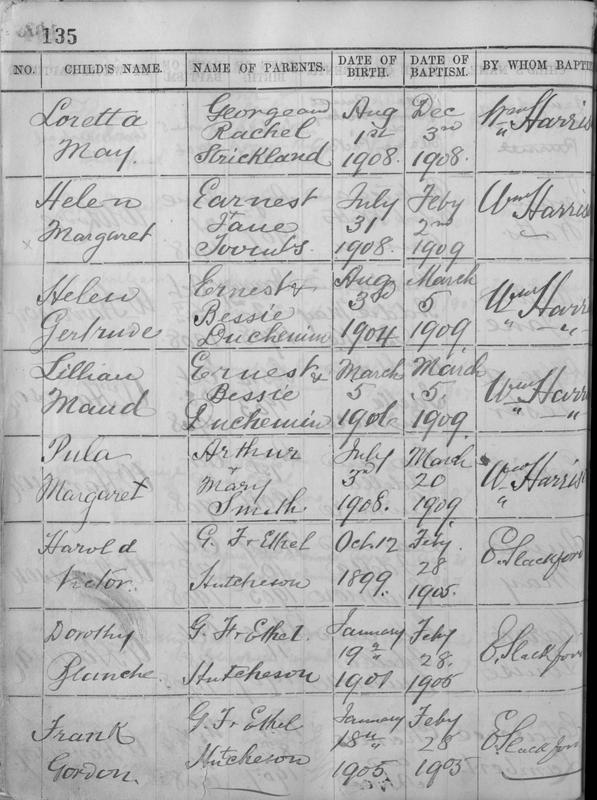 135
NO. CHILD'S NAME. NAME OF PARENTS. DATE OF BIRTH. DATE OF BAPTISM. BY WHOM BAPTI
Loretta George and Aug Dec Wm Harris
May. Rachel 1st 3rd "
Strickland 1908. 1908.
Helen Earnest July Feby Wm Harris
Margaret + 31 2nd "
1908. 1909
Helen Ernest & Aug March Wm Harr
Gertrude Bessie 3rd 5 " "
Duchemin 1904 1909
Lillian Ernest & March March Wm Harr
Maud Bessie 5 5. " "
Duchemin 1906 1909.
Pula Arthur July March Wm Harris
Margaret + Mary 3rd 20 "
Smith 1908. 1909
Harold G. F & Ethel Oct. 12 Feby. E. Slackford
Victor. Hutcheson 1899. 28
1905.
Dorothy G. F & Ethel. January Feby E. Slackfor
Blanche. Hutcheson 19 28.
1901 1905
Frank G. F & Ethel January Feby E. Slackfor
Gordon. Hutcheson 18th 28
1905. 1905